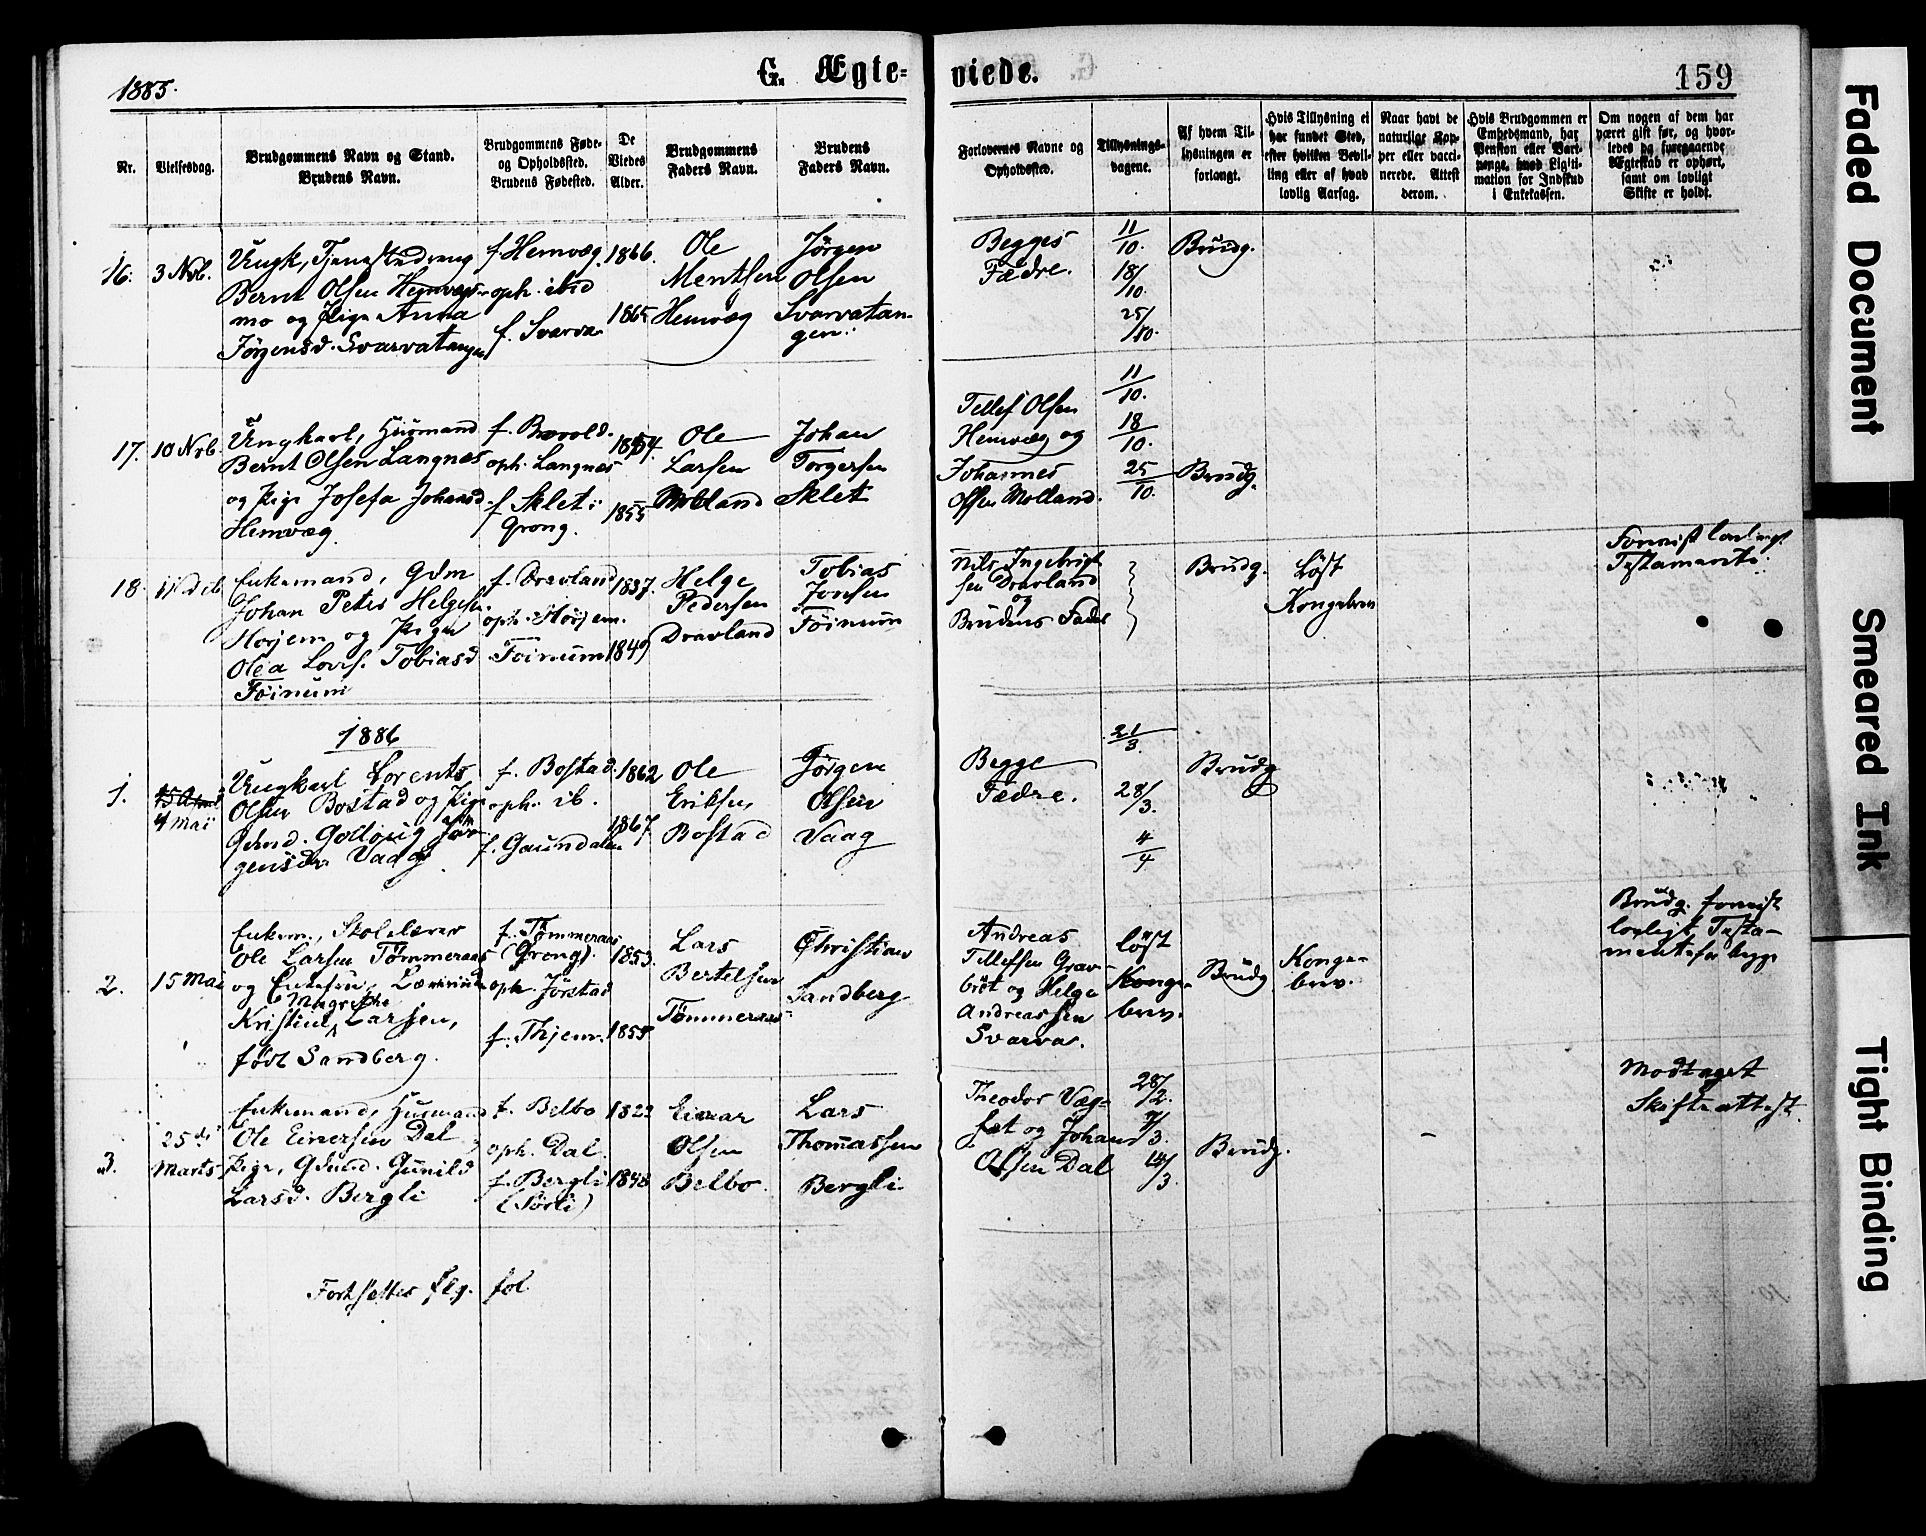 1885.
G. Ægte-
viede.
159
Nr.
Vielsesdag.
Brudgommens Navn og Stand.
Brudens Navn.
Brudgommens Føde-
og Opholdssted.
Brudens Fødested.
De
Viedes
Alder.
Brudgommens
Faders Navn.
Brudens
Faders Navn.
Forlovernes Navne og
Opholdssted.
Tillysnings-
dagene.
Af hvem Til-
lysningen er
forlangt.
Hvis Tillysning ei
har fundet Sted,
efter hvilken Bevil-
ling eller af hvad
lovlig Aarsag.
Naar havt de
naturlige Kop-
per eller vacci-
nerede. Attest
derom.
Hvis Brudgommen er
Embedsmand, har
Pension eller Vart-
penge, hvad Legiti-
mation for Indskud
i Enkekassen.
Om nogen af dem har
været gift før, og hvor-
ledes da foregaaende
Ægteskab er ophørt,
samt om lovligt
Skifte er holdt.
16.
3 Nvb.
Ungk., Tjenestedreng
Bernt Olsen Hemvægs-
mo og Pige Anna
Jørgensd. Svarvatangen
f. Hemvæg.
oph. ibid
f. Svarva
1866.
1865
Ole
Mentsen
Hemvæg
Jørgen
Olsen
Svarvatan-
gen.
Begges
Fædre.
11/10.
18/10.
25/10.
Brudg.
17.
10 Nvb.
Ungkarl, Husmand
Bernt Olsen Langnæs
og Pige Josefa Johansd
Hemvæg.
oph. Langnæs
f. Sklet i
Grong.
1854.
1855
Ole
Larsen
Molland
Johan
Torgersen
Sklet
Tellef Olsen
Hemvæg og
Johannes
Olsen Molland.
11/10.
18/10.
25/10.
Brudg.
18.
Enkemand, Gdm
Johan Peter Helgesen
Horjem og Pige
Olea Lovis. Tobiasd
Føinum
f. Dravland
oph. Horjem.
Føinum
1837.
1849
Helge
Pedersen
Dravland
Tobias
Jonsen
Føinum
Nils Ingebrigt
sen Dravland
og
Brudens Fader
Brudg.
Løst
Kongebrev
Forevist lovligt
Testamente.
1886
1.
15 April
4 Mai
Ungkarl Lorents
Olsen Bostad og Pige
Gdmd. Gollaug Jør-
gensdr Vaag.
f. Bostad.
oph. ib.
f. Gaundalen
1862
1867.
Ole
Eriksen
Bostad
Jørgen
Olsen
Vaag
Begge
Fædre.
21/3.
28/3.
4/4
Brudg
2.
15 Mai
Enkem., Skolelærer
Ole Larsen Tømmeraas
og Enkefru, Lærerinde
Magrethe
Kristine Larsen,
født Sandberg.
f. Tømmeraas
(Grong).
oph. Jørstad
f. Thjem.
1853.
1855
Lars
Bertelsen
Tømmeraas
Christian
Sandberg
Andreas
Tellefsen Grav-
bröt og Helge
Andreassen
Svarva.
løst
Konge-
brev.
Brudg
Konge-
brev.
Brudg. forevist
lovligt Testa-
mente for begge
3.
25de
Marts
Enkemand, Husmand
Ole Einersen Dal
Pige, Gdmd. Gunild
Larsd. Bergli
f. Belbo
oph. Dal.
f. Bergli
(Sørli)
1822
1848
Einar
Olsen
Belbo.
Lars
Thomassen
Bergli
Theodor Væg-
set og Johan
Olsen Dal
28/2.
7/3.
14/3.
Brudg.
Modtaget
Skifteattest.
Fortsættes flg. fol.
Faded Document
Smeared Ink
Tight Binding